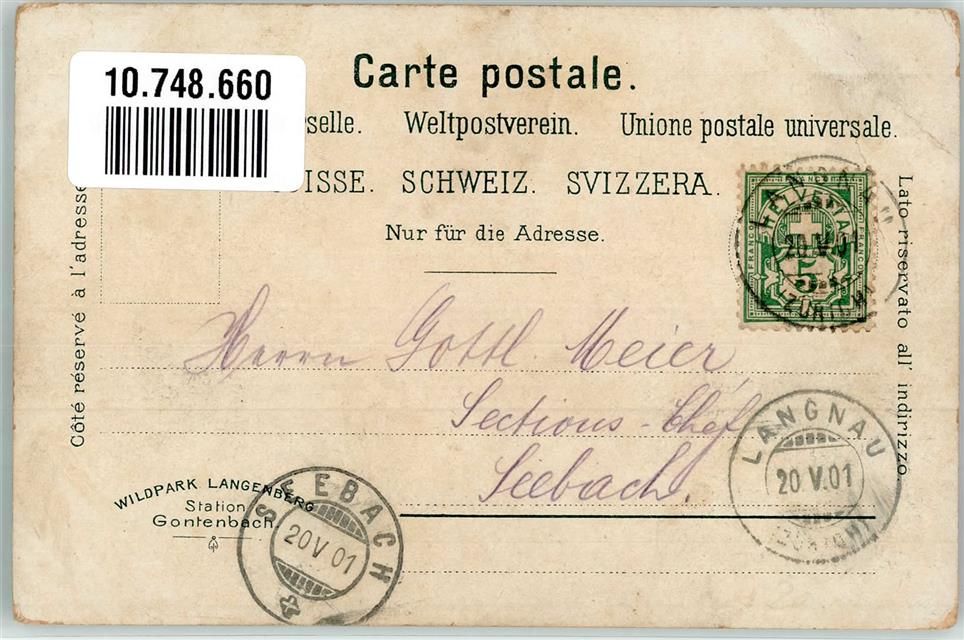 10.748.660
Carte postale.
rselle. Weltpostverein. Unione postale universale.
UISSE. SCHWEIZ. SVIZZERA.
Nur für die Adresse.
Côté réservé à l'adresse
Lato riservato all' indirizzo.
FRANCO
HELVETIA
5
LANGNAU
20.V.01
(ZÜRICH)
Herrn Gottl. Meier
Sections-Chef
Seebach.
LANGNAU
20 V.01
(ZÜRICH)
WILDPARK LANGENBERG
Station
Gontenbach.
SEEBACH
20 V 01